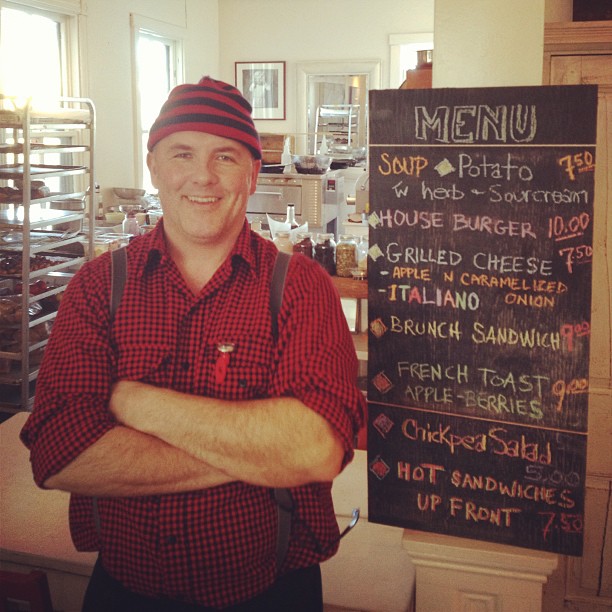 MENU
SOUP Potato 7.50
w herb - Sourcream
HOUSE BURGER 10.00
GRILLED CHEESE 7.50
- APPLE N CARAMELIZED
ONION
- ITALIANO
BRUNCH SANDWICH 9.00
FRENCH TOAST
APPLE-BERRIES 9.00
Chickpea Salad
5.00
HOT SANDWICHES
UP FRONT 7.50